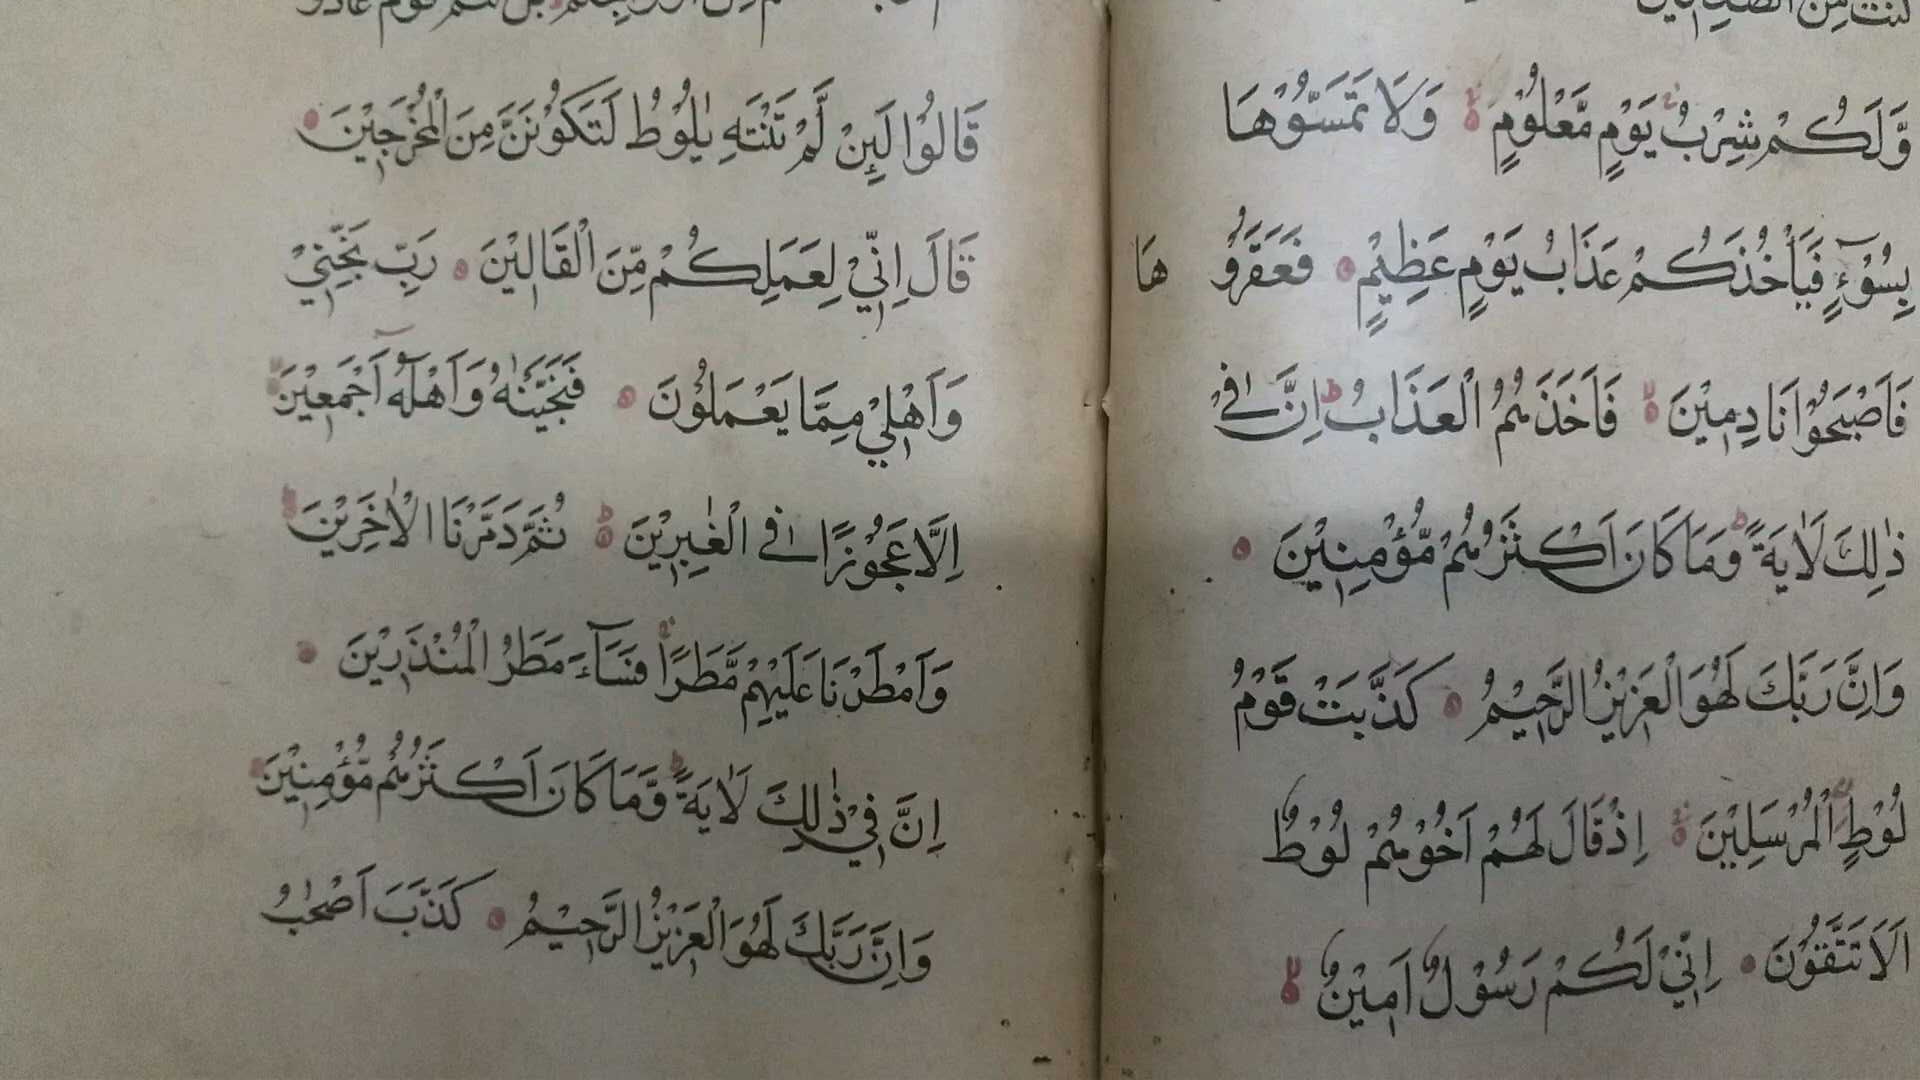 كُنْتَ مِنَ الصّٰدِقِيْنَ
وَّلَكُمْ شِرْبُ يَوْمٍ مَّعْلُوْمٍ وَلَا تَمَسُّوْهَا
بِسُوْٓءٍ فَيَاْخُذَكُمْ عَذَابُ يَوْمٍ عَظِيْمٍ فَعَقَرُوْ هَا
فَاَصْبَحُوْا نَادِمِيْنَ فَاَخَذَهُمُ الْعَذَابُ ط اِنَّ فِيْ
ذٰلِكَ لَاٰيَةً ط وَمَا كَانَ اَكْثَرُهُمْ مُّؤْمِنِيْنَ
وَاِنَّ رَبَّكَ لَهُوَ الْعَزِيْزُ الرَّحِيْمُ كَذَّبَتْ قَوْمُ
لُوْطٍ الْمُرْسَلِيْنَ اِذْ قَالَ لَهُمْ اَخُوْهُمْ لُوْطٌ
اَلَا تَتَّقُوْنَ اِنِّيْ لَكُمْ رَسُوْلٌ اَمِيْنٌ
بَلْ اَنْتُمْ قَوْمٌ عَادُوْ
قَالُوْا لَئِنْ لَّمْ تَنْتَهِ يٰلُوْطُ لَتَكُوْنَنَّ مِنَ الْمُخْرَجِيْنَ
قَالَ اِنِّيْ لِعَمَلِكُمْ مِّنَ الْقَالِيْنَ رَبِّ نَجِّنِيْ
وَاَهْلِيْ مِمَّا يَعْمَلُوْنَ فَنَجَّيْنٰهُ وَاَهْلَهٗٓ اَجْمَعِيْنَ
اِلَّا عَجُوْزًا فِي الْغٰبِرِيْنَ ط ثُمَّ دَمَّرْنَا الْاٰخَرِيْنَ
وَاَمْطَرْنَا عَلَيْهِمْ مَّطَرًا فَسَآءَ مَطَرُ الْمُنْذَرِيْنَ
اِنَّ فِيْ ذٰلِكَ لَاٰيَةً ط وَّمَا كَانَ اَكْثَرُهُمْ مُّؤْمِنِيْنَ
وَاِنَّ رَبَّكَ لَهُوَ الْعَزِيْزُ الرَّحِيْمُ كَذَّبَ اَصْحٰبُ